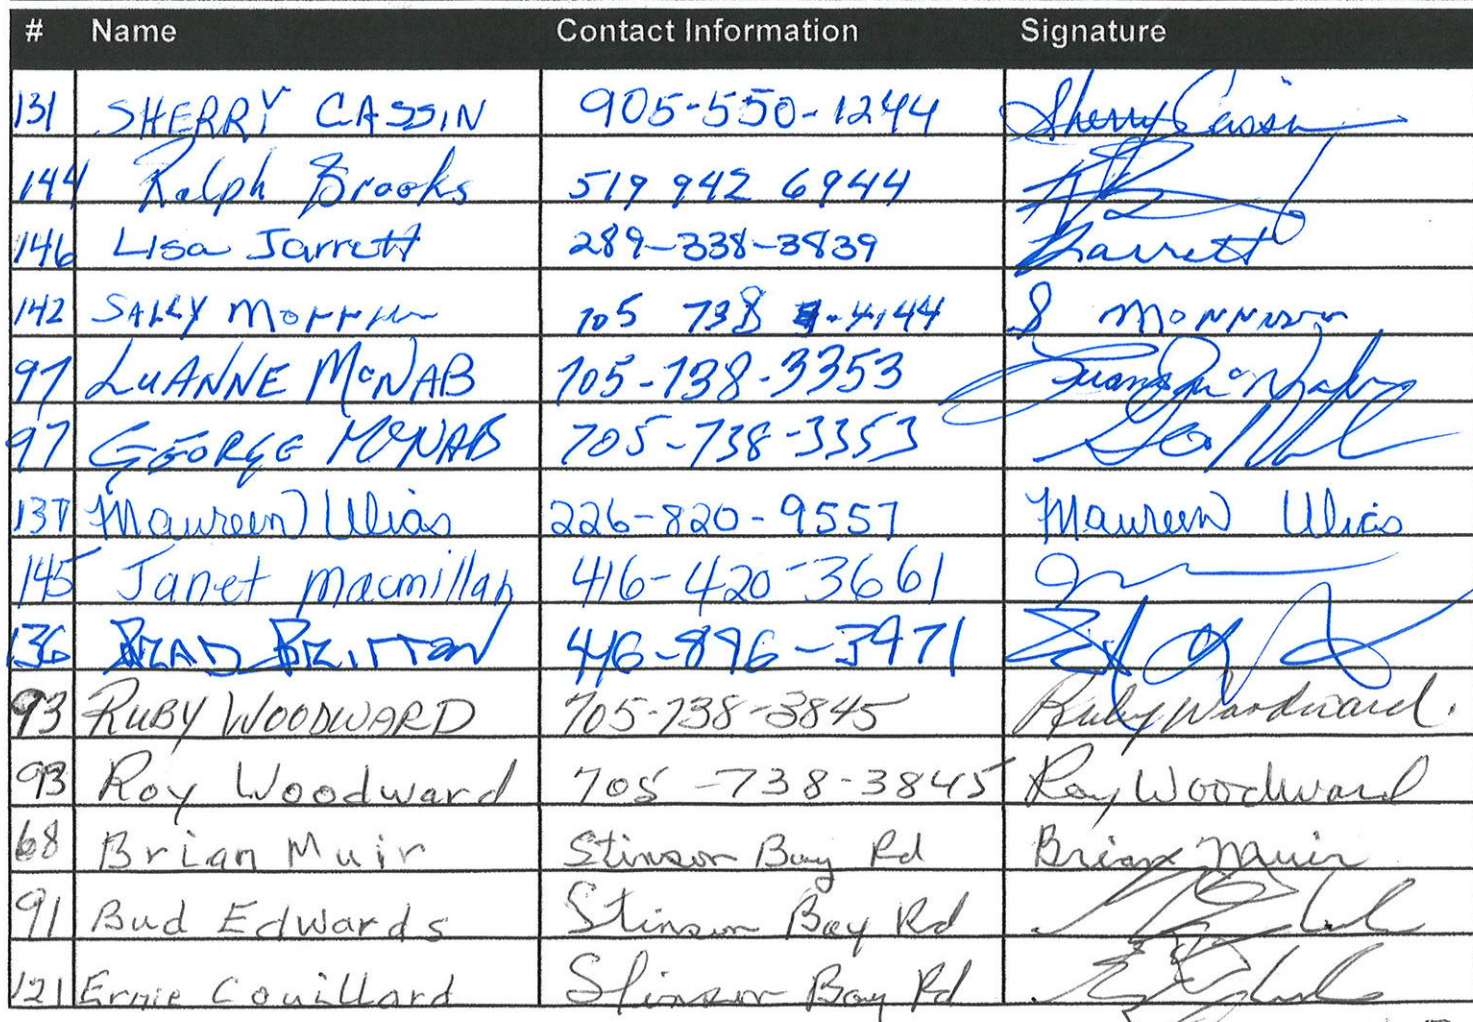 # Name Contact Information Signature
131 SHERRY CASSIN 905-550-1244 Sherry Cassin
144 Ralph Brooks 519 942 6944
146 Lisa Jarrett 289-338-3839 Jarrett
142 SALLY Morrison 705 738 4144 S Morrison
97 LUANNE McNAB 705-738-3353 Luanne McNab
97 GEORGE McNAB 705-738-3353
137 Maureen Ulias 226-820-9557 Maureen Ulias
145 Janet Macmillan 416-420-3661
136 BRAD BRITTON 416-896-3971
93 RUBY WOODWARD 705-738-3845 Ruby Woodward.
93 Roy Woodward 705-738-3845 Roy Woodward
68 Brian Muir Stinson Bay Rd Brian Muir
91 Bud Edwards Stinson Bay Rd
121 Ernie Couillard Stinson Bay Rd